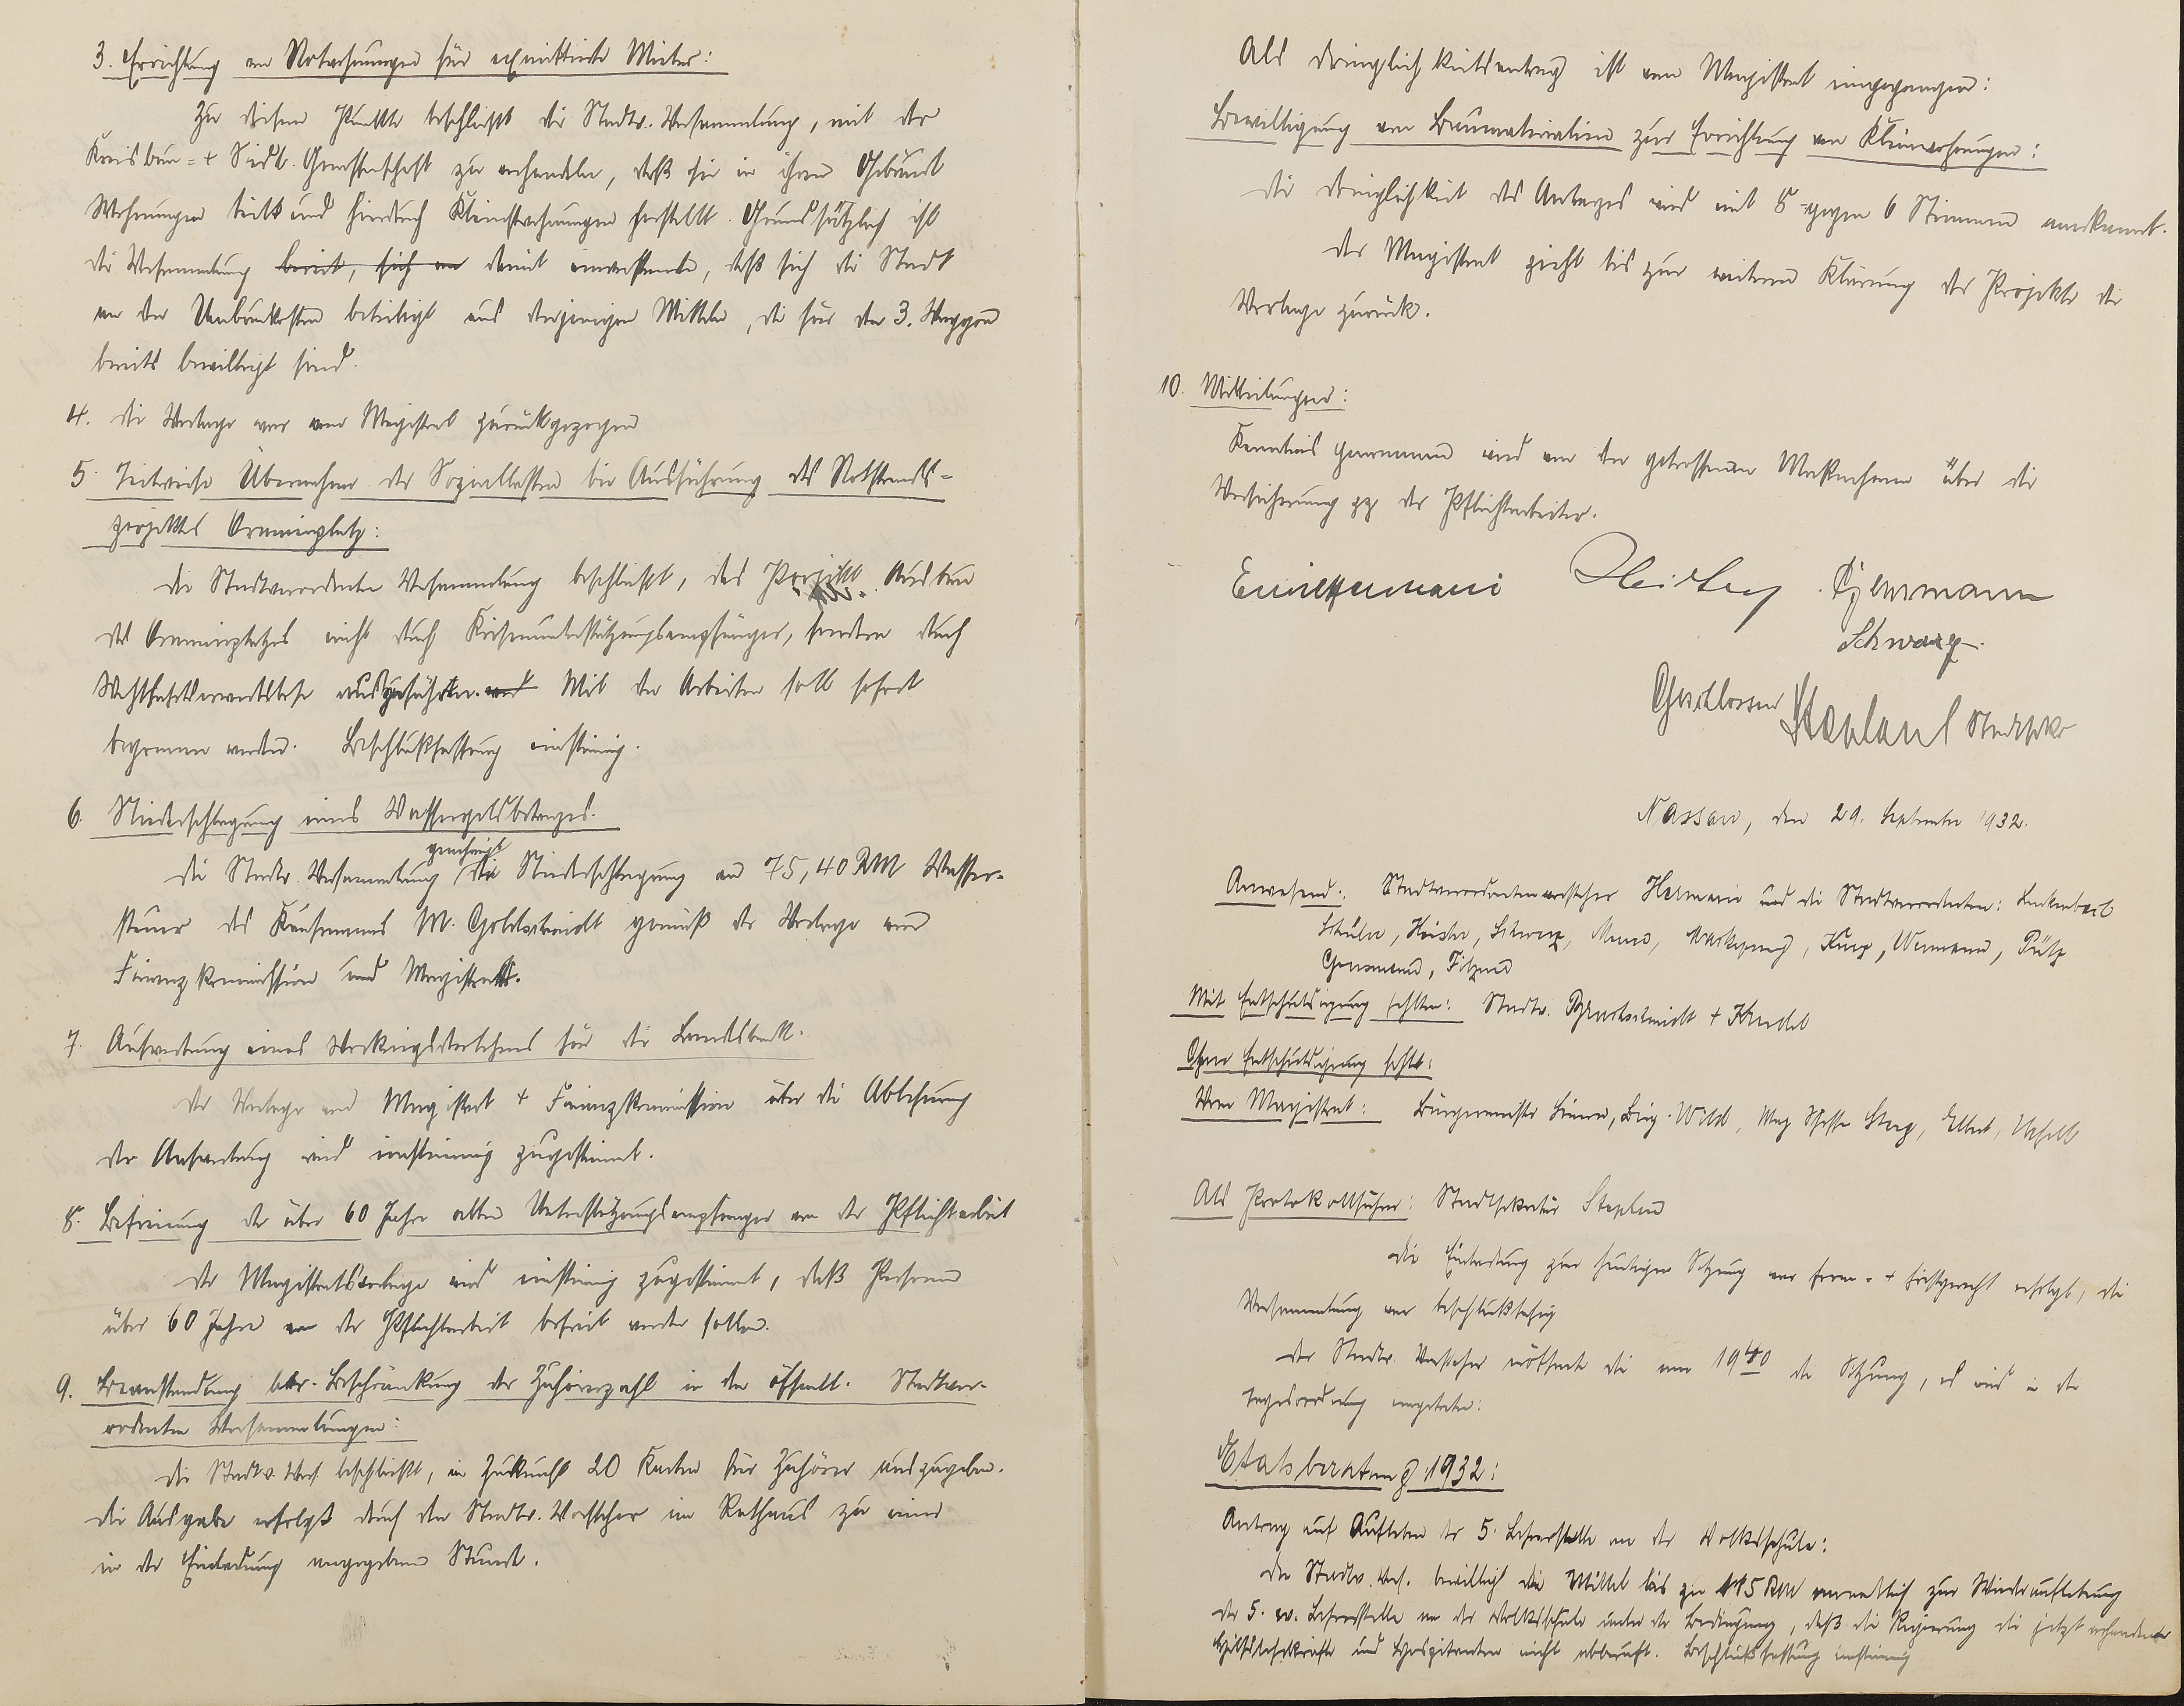 3. Errichtung von Notwohnungen für exmittierte Mieter:
Zu diesem Punkte beschließt die Stadtv. Versammlung, mit der
Kreisbau- + Siedl. Genossenschaft zu verhandeln, daß sie in ihrem Gebäude
Wohnungen teilt und hierdurch Kleinstwohnungen herstellt. Grundsätzlich ist
die Versammlung bereit, sich an damit einverstanden, daß sich die Stadt
an den Umbaukosten beteiligt aus denjenigen Mitteln, die für den 3. Waggon
bereits bewilligt sind.
4. Die Vorlage war vom Magistrat zurückgezogen
5. Teilweise Übernahme der Soziallasten bei Ausführung des Notstands-
projektes Oranienplatz:
Die Stadtverordneten Versammlung beschließt, das Projekt Ausbau
des Oranienplatzes nicht durch Krisenunterstützungsempfänger, sondern durch
Wohlfahrtserwerbslose auszuführen. und Mit den Arbeiten soll sofort
begonnen werden. Beschlußfassung einstimmig.
6. Niederschlagung eines Wassergeldbetrages.
Die Stadtv. Versammlung genehmigt die Niederschlagung von 75,40 RM Wasser-
steuer des Kaufmanns M. Goldschmidt gemäß der Vorlage von
Finanzkommission und Magistrat.
7. Aufwertung eines Vorkriegsdarlehens für die Landesbank.
Der Vorlage von Magistrat + Finanzkommission über die Ablehnung
der Aufwertung wird einstimmig zugestimmt.
8. Befreiung der über 60 Jahre alten Unterstützungsempfänger von der Pflichtarbeit
Der Magistratsvorlage wird einstimmig zugestimmt, daß Personen
über 60 Jahre von der Pflichtarbeit befreit werden sollen.
9. Beanstandung betr. Beschränkung der Zuhörerzahl in den öffentl. Stadtver-
ordneten Versammlungen:
Die Stadtv. Vers. beschließt, in Zukunft 20 Karten für Zuhörer auszugeben.
Die Ausgabe erfolgt durch den Stadtv. Vorsteher im Rathaus zu einer
in der Einladung angegebenen Stunde.
Als Dringlichkeitsantrag ist vom Magistrat eingegangen:
Bewilligung von Baumaterialien zur Errichtung von Kleinwohnungen:
Die Dringlichkeit des Antrages wird mit 8 gegen 6 Stimmen anerkannt.
Der Magistrat zieht bis zur weiteren Klärung der Projekte die
Vorlage zurück.
10. Mitteilungen:
Kenntnis genommen wird von den getroffenen Maßnahmen über die
Versicherung pp der Pflichtarbeiter.
Schwarz
Geschlossen Stephan Stadtsekr
Nassau, den 29. September 1932.
Anwesend: Stadtverordnetenvorsteher Hermani und die Stadtverordneten: Lückenbach
Schulz, Heister, Schwarz, Kurz, Pütz
Mit Entschuldigung fehlten: Stadtv. Goldschmidt +
Ohne Entschuldigung fehlte:
Vom Magistrat: Bürgermeister Beig. Mag Schöffe
Als Protokollführer: Stadtsekretär Stephan
Die Einladung zur heutigen Sitzung war form- + fristgerecht erfolgt, die
Versammlung war beschlußfähig
Der Stadtv. Vorsteher eröffnete die um 19 40 die Sitzung, es wird in die
Tagesordnung eingetreten:
Etatsberatung 1932:
Antrag auf Aufleben der 5. Lehrerstelle an der Volksschule:
Die Stadtv. Vers. bewilligt die Mittel bis zu 175 RM monatlich zur Wiederauflebung
der 5. ev. Lehrerstelle an der Volksschule unter der Bedingung, daß die Regierung die jetzt vorhandenen
Hilfslehrkräfte und Hospitanten nicht abberuft. Beschlußfassung einstimmig